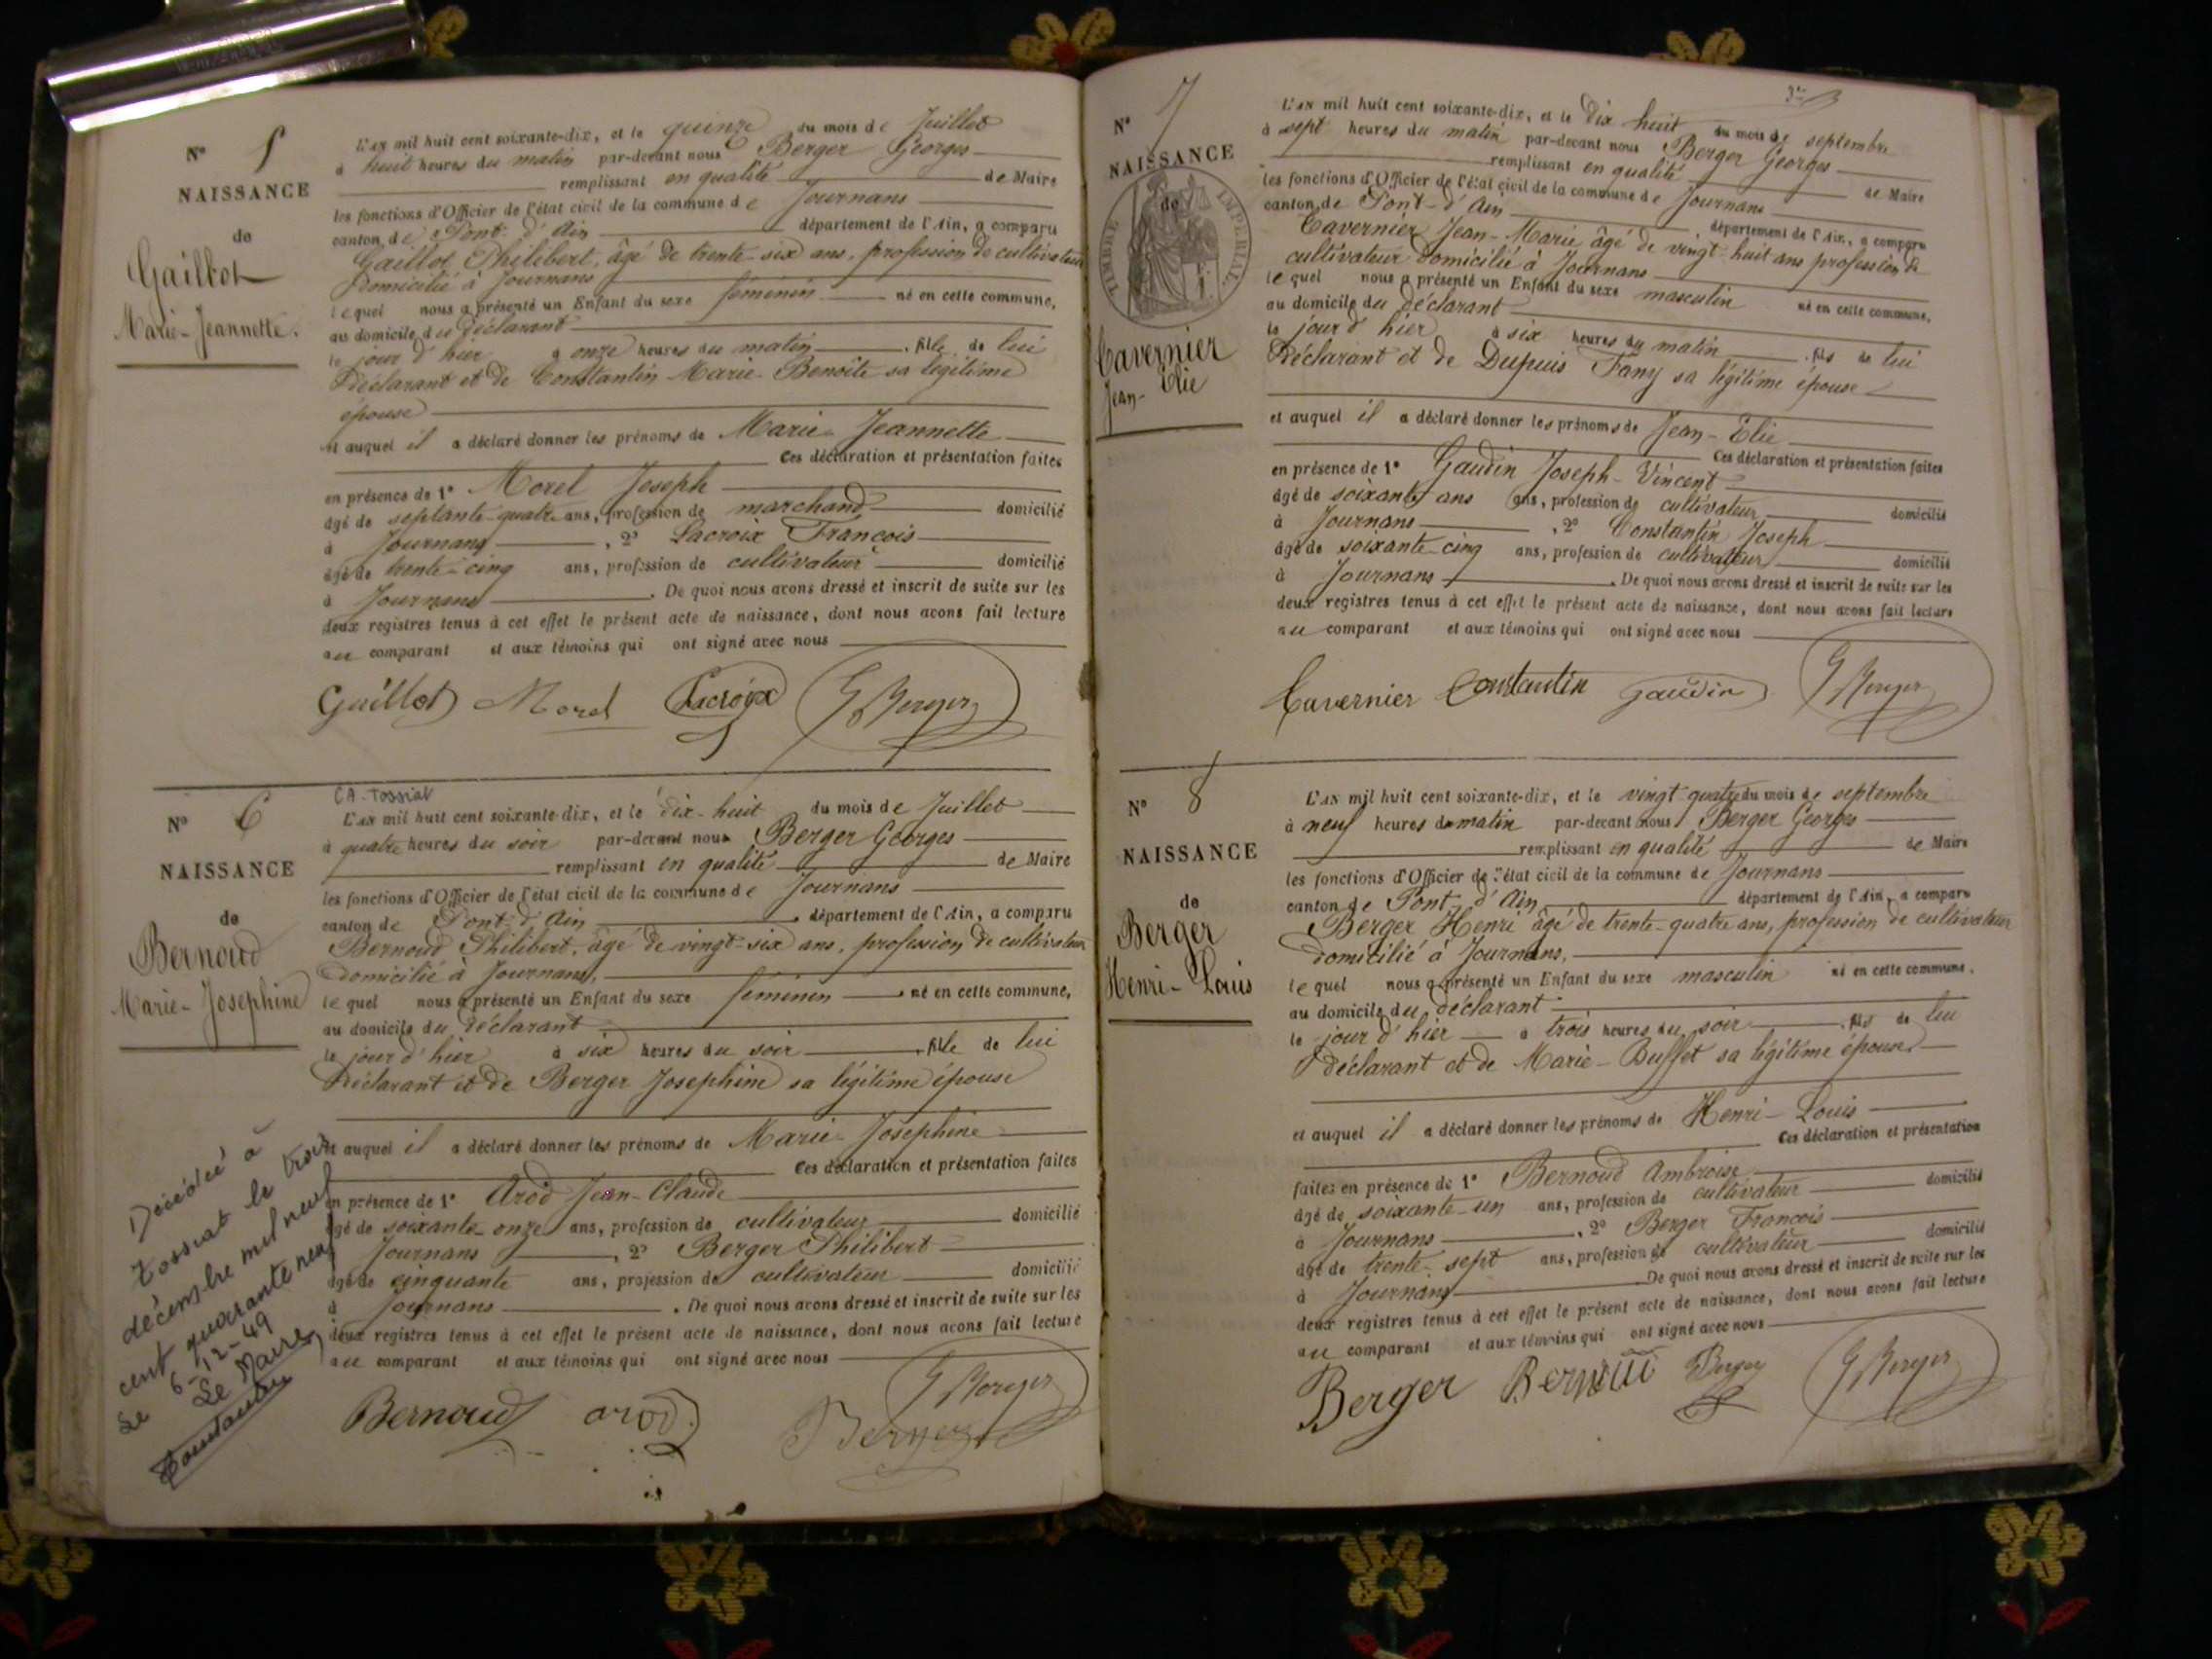 N° 5
NAISSANCE
de
Gaillot
Marie-Jeannette.
L'AN mil huit cent soixante-dix, et le quinze du mois de Juillet
à huit heures du matin par-devant nous Berger Georges
remplissant en qualité de Maire
les fonctions d'Officier de l'état civil de la commune de Journans
canton de Pont-d'Ain département de l'Ain, a comparu
Gaillot Philibert, âgé de trente-six ans, profession de cultivateur
domicilié à Journans
lequel nous a présenté un Enfant du sexe féminin né en cette commune,
au domicile du déclarant
le jour d'hier à onze heures du matin, fille de lui
Déclarant et de Constantin Marie-Benoîte sa légitime
épouse
et auquel il a déclaré donner les prénoms de Marie-Jeannette
Ces déclaration et présentation faites
en présence de 1° Morel Joseph
âgé de septante-quatre ans, profession de marchand domicilié
à Journans, 2° Lacroix François
âgé de trente-cinq ans, profession de cultivateur domicilié
à Journans. De quoi nous avons dressé et inscrit de suite sur les
deux registres tenus à cet effet le présent acte de naissance, dont nous avons fait lecture
au comparant et aux témoins qui ont signé avec nous
Gaillot Morel Lacroix G Berger
CA. Tossiat
N° 6
NAISSANCE
de
Bernoud
Marie-Josephine
L'AN mil huit cent soixante-dix, et le dix-huit du mois de Juillet
à quatre heures du soir par-devant nous Berger Georges
remplissant en qualité de Maire
les fonctions d'Officier de l'état civil de la commune de Journans
canton de Pont-d'Ain, département de l'Ain, a comparu
Bernoud Philibert, âgé de vingt-six ans, profession de cultivateur
domicilié à Journans,
lequel nous a présenté un Enfant du sexe féminin né en cette commune,
au domicile du déclarant
le jour d'hier à six heures du soir, fille de lui
Déclarant et de Berger Josephine sa légitime épouse
et auquel il a déclaré donner les prénoms de Marie-Josephine
Ces déclaration et présentation faites
en présence de 1° Arod Jean-Claude
âgé de soixante-onze ans, profession de cultivateur domicilié
à Journans, 2° Berger Philibert
âgé de cinquante ans, profession de cultivateur domicilié
à Journans. De quoi nous avons dressé et inscrit de suite sur les
deux registres tenus à cet effet le présent acte de naissance, dont nous avons fait lecture
au comparant et aux témoins qui ont signé avec nous
Bernoud arod G Berger
Berger
Décédée à
Tossiat le trois
décembre mil neuf
cent quarante neuf
Le 6-12-49
Le Maire,
Constantin
3e
N° 7
NAISSANCE
de
TIMBRE IMPERIAL
Cavernier
Jean-Elie
L'AN mil huit cent soixante-dix, et le dix huit du mois de septembre
à sept heures du matin par-devant nous Berger Georges
remplissant en qualité de Maire
les fonctions d'Officier de l'état civil de la commune de Journans
canton de Pont-d'Ain, département de l'Ain, a comparu
Cavernier Jean-Marie âgé de vingt-huit ans profession de
cultivateur domicilié à Journans
lequel nous a présenté un Enfant du sexe masculin né en cette commune,
au domicile du déclarant
le jour d'hier à six heures du matin, fils de lui
Déclarant et de Dupuis Fany sa légitime épouse
et auquel il a déclaré donner les prénoms de Jean-Elie
Ces déclaration et présentation faites
en présence de 1° Gaudin Joseph-Vincent
âgé de soixante ans ans, profession de cultivateur domicilié
à Journans, 2° Constantin Joseph
âgé de soixante-cinq ans, profession de cultivateur domicilié
à Journans. De quoi nous avons dressé et inscrit de suite sur les
deux registres tenus à cet effet le présent acte de naissance, dont nous avons fait lecture
au comparant et aux témoins qui ont signé avec nous
Cavernier Constantin gaudin G Berger
N° 8
NAISSANCE
de
Berger
Henri-Louis
L'AN mil huit cent soixante-dix, et le vingt-quatre du mois de septembre
à neuf heures du matin par-devant nous Berger Georges
remplissant en qualité de Maire
les fonctions d'Officier de l'état civil de la commune de Journans
canton de Pont-d'Ain, département de l'Ain, a comparu
Berger Henri âgé de trente-quatre ans, profession de cultivateur
domicilié à Journans,
lequel nous a présenté un Enfant du sexe masculin né en cette commune,
au domicile du déclarant
le jour d'hier à trois heures du soir, fils de lui
déclarant et de Marie-Buffet sa légitime épouse
et auquel il a déclaré donner les prénoms de Henri-Louis
Ces déclaration et présentation
faites en présence de 1° Bernoud Ambroise
âgé de soixante-un ans, profession de cultivateur domicilié
à Journans, 2° Berger François
âgé de trente-sept ans, profession de cultivateur domicilié
à Journans De quoi nous avons dressé et inscrit de suite sur les
deux registres tenus à cet effet le présent acte de naissance, dont nous avons fait lecture
au comparant et aux témoins qui ont signé avec nous
Berger Bernoud Berger G Berger